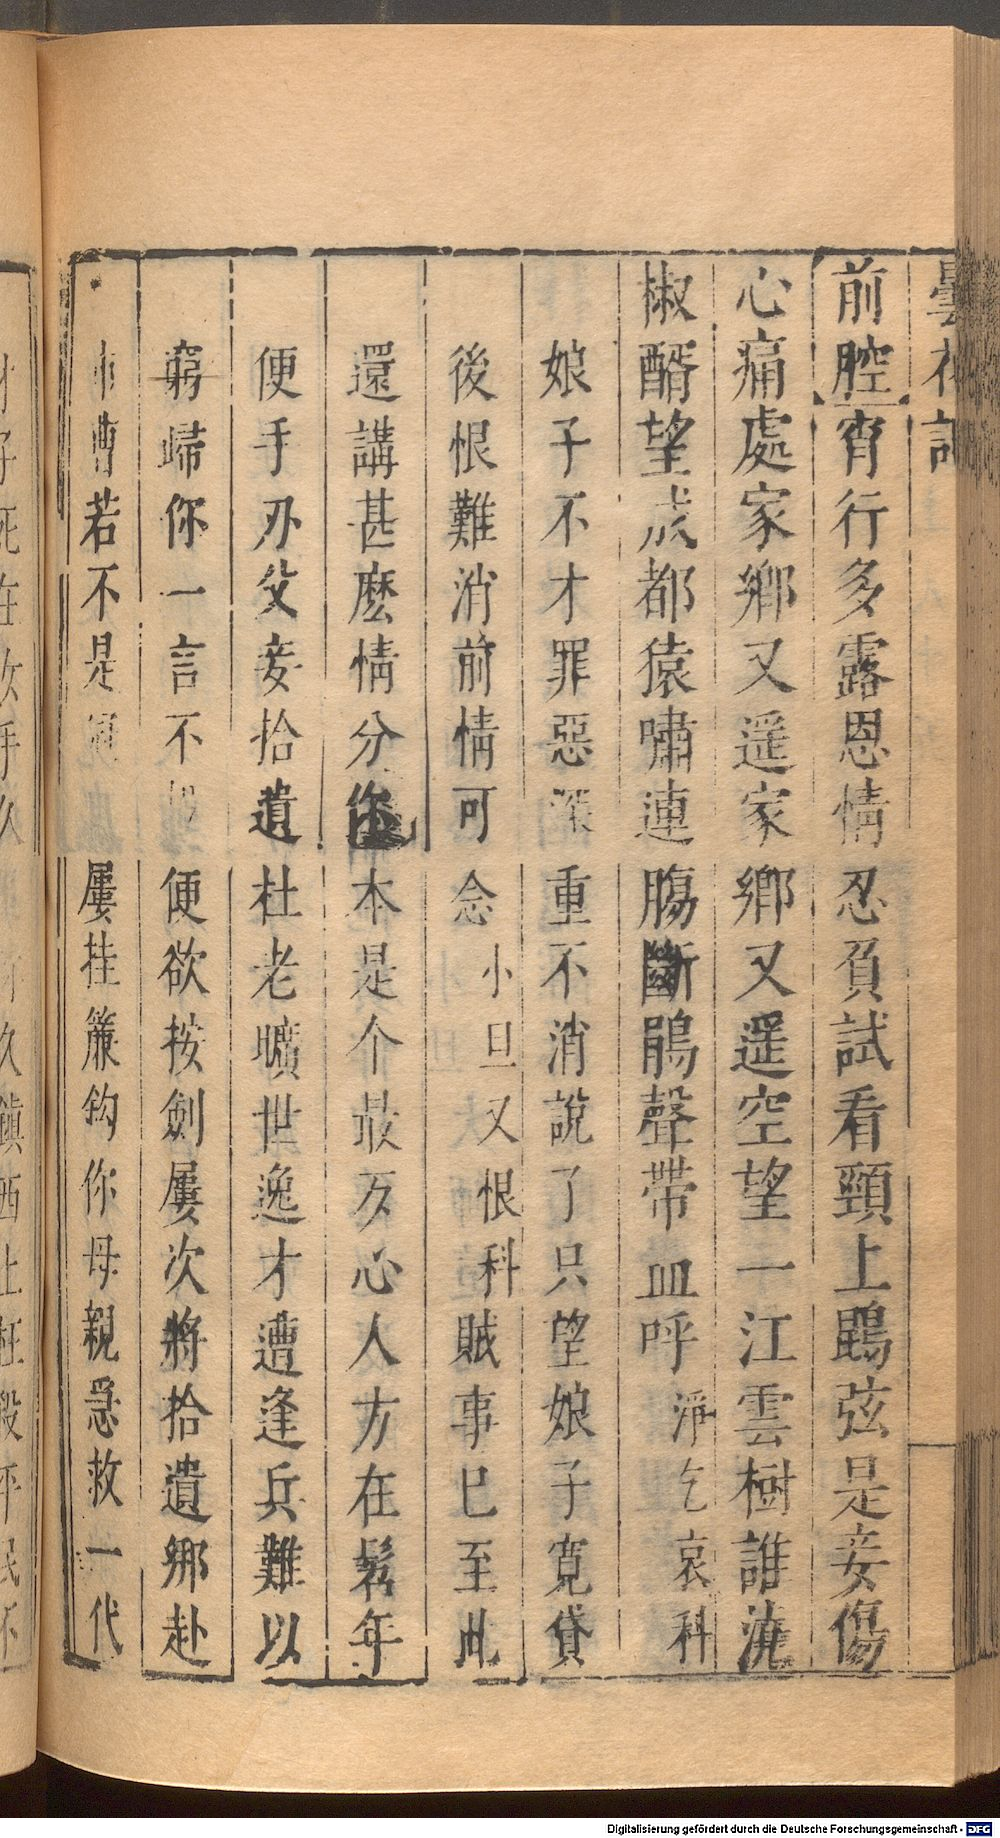 曇花記
前腔宵行多露恩情忍負試看頸上鵾弦是妾傷
心痛處家鄉又遥家鄉又遥空望一江雲樹誰澆
椒醑望成都猿嘯連腸斷鵑聲帶血呼淨乞哀科
娘子不才罪惡深重不消說了只望娘子寛貸
後恨難消前情可念小旦又恨科賊事巳至此
還講甚麽情分你本是个最歹心人方在髫年
便手刃父妾拾遺杜老曠世逸才遭逢兵難以
窮歸你一言不 便欲按劍屢次將拾遺綁赴
市曹若不是冠 屢挂簾鈎你母親急救一代
才子死在汝手久 你久鎮西土枉殺平民不
Digitalisierung gefördert durch die Deutsche Forschungsgemeinschaft - DFG